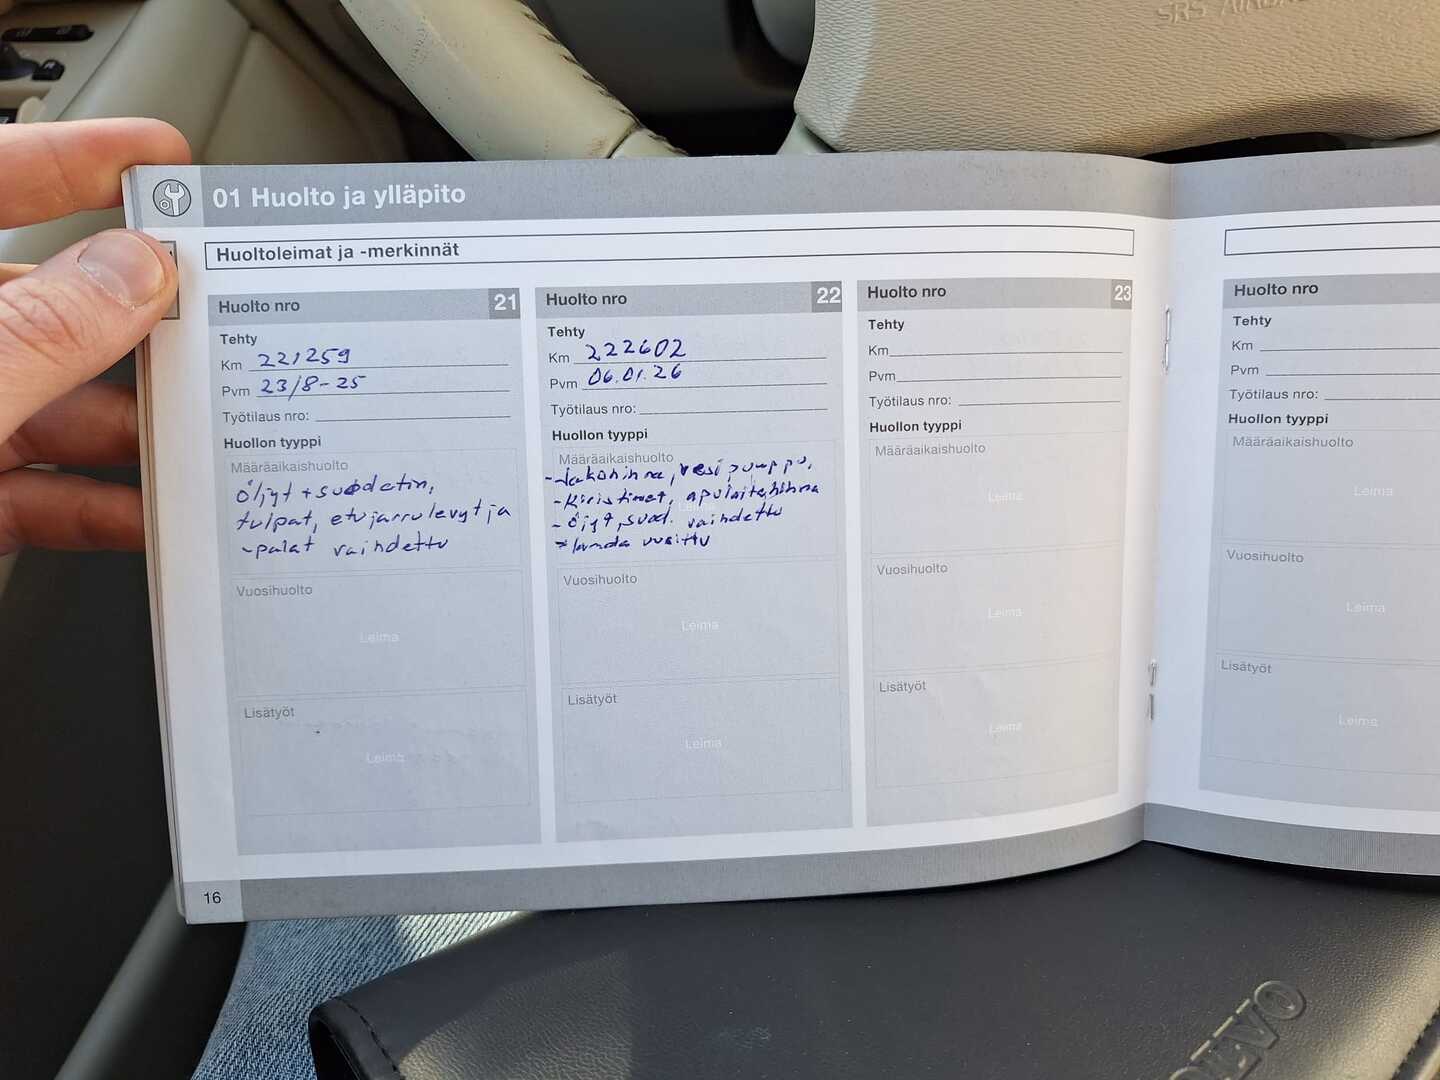 SRS AIRBAG
01 Huolto ja ylläpito
Huoltoleimat ja -merkinnät
Huolto nro 21
Tehty
Km 221259
Pvm 23/8-25
Työtilaus nro:
Huollon tyyppi
Määräaikaishuolto
Öljyt + suodatin,
tulpat, etujarrulevyt ja
-palat vaihdettu
Vuosihuolto
Leima
Lisätyöt
Leima
Huolto nro 22
Tehty
Km 222602
Pvm 06.01.26
Työtilaus nro:
Huollon tyyppi
Määräaikaishuolto
- Jakohihna, vesipumppu,
- Kiristimet, apulaitehihna
- Öljyt, suod. vaihdettu
uusittu
Vuosihuolto
Leima
Lisätyöt
Leima
Huolto nro 23
Tehty
Km
Pvm
Työtilaus nro:
Huollon tyyppi
Määräaikaishuolto
Leima
Vuosihuolto
Leima
Lisätyöt
Leima
Huolto nro
Tehty
Km
Pvm
Työtilaus nro:
Huollon tyyppi
Määräaikaishuolto
Leima
Vuosihuolto
Leima
Lisätyöt
Leima
16
VOLVO